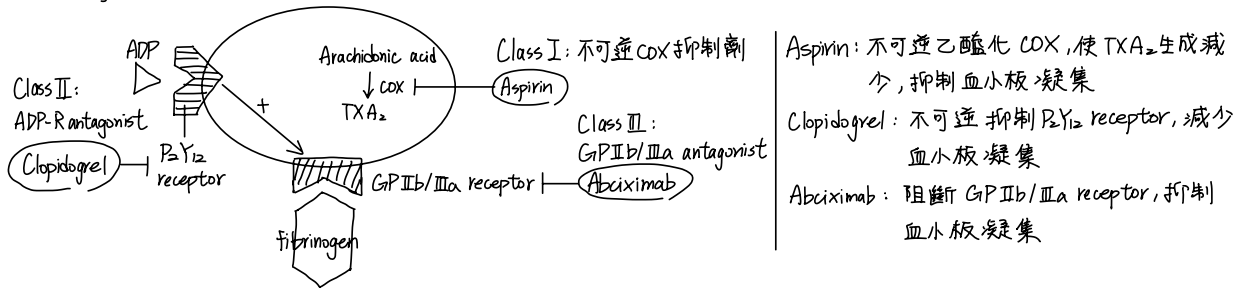 ADP
Class II:
ADP-R antagonist
Clopidogrel
P2Y12
receptor
+
Arachidonic acid
COX
TXA2
Class I: 不可逆COX抑制劑
Aspirin
Class III:
GPIIb/IIIa antagonist
GPIIb/IIIa receptor
Abciximab
fibrinogen
Aspirin: 不可逆乙醯化 COX,使TXA2生成減
少,抑制血小板凝集
Clopidogrel: 不可逆抑制P2Y12 receptor,減少
血小板凝集
Abciximab: 阻斷 GPIIb/IIIa receptor,抑制
血小板凝集